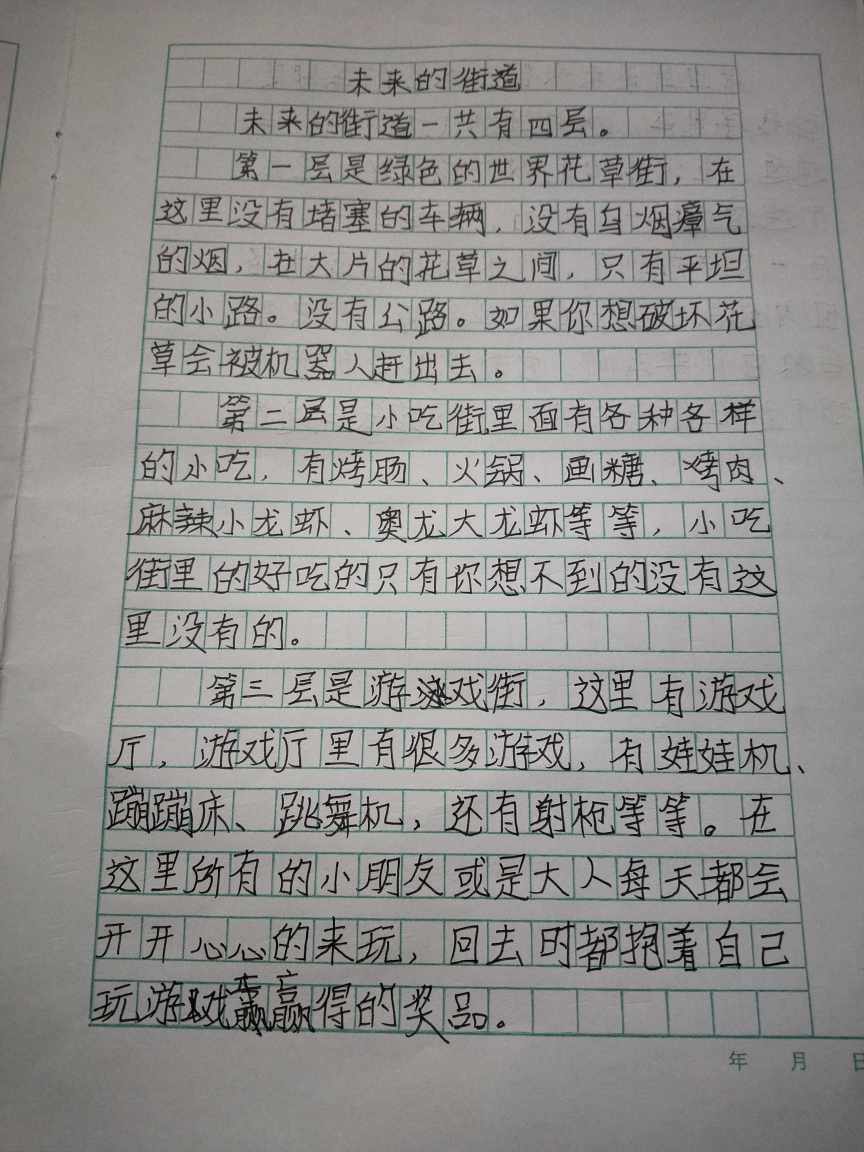 未来的街道
未来的街道一共有四层。
第一层是绿色的世界花草街，在
这里没有堵塞的车辆，没有乌烟瘴气
的烟，在大片的花草之间，只有平坦
的小路。没有公路。如果你想破坏花
草会被机器人赶出去。
第二层是小吃街里面有各种各样
的小吃，有烤肠、火锅、画糖、烤肉、
麻辣小龙虾、奥龙大龙虾等等，小吃
街里的好吃的只有你想不到的没有这
里没有的。
第三层是游戏街，这里有游戏
厅，游戏厅里有很多游戏，有娃娃机、
蹦蹦床、跳舞机，还有射枪等等。在
这里所有的小朋友或是大人每天都会
开开心心的来玩，回去时都抱着自己
玩游戏赢得的奖品。
年 月 日